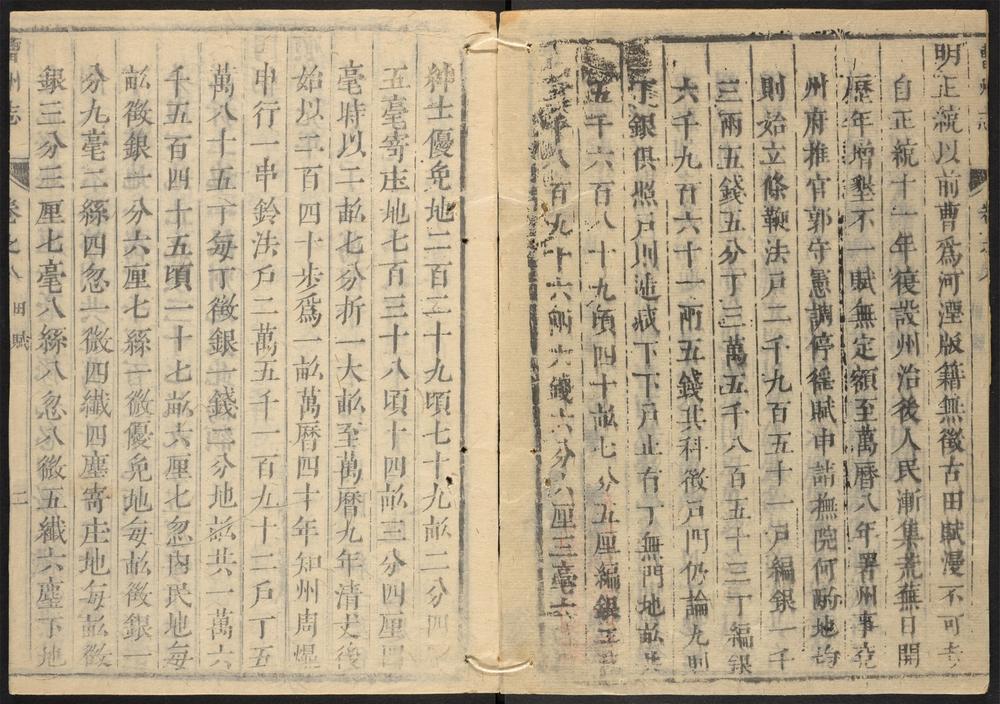 明正統以前曹爲河湮版籍無徵古田賦漫不可考
自正統十一年復設州治後人民漸集荒蕪日開
歷年增墾不一賦無定額至萬曆八年署州事兗
州府推官郭守憲調停徭賦申請撫院何酌地均
則始立條鞭法戶二千九百五十一戶編銀一千
三兩五錢五分丁三萬五千八百五十三丁編銀
六千九百六十一兩五錢其科徵戶門仍論九則
丁銀俱照戶則遞减下下戶止有丁無門地畝共
五千六百八十九頃四十畝七分五厘編銀
八百九十六兩六錢六分六厘三毫六
紳士優免地二百三十九頃七十九畝二分四
五毫寄庄地七百三十八頃十四畝三分四厘四
毫時以二畝七分折一大畝至萬曆九年清丈後
始以二百四十步爲一畝萬曆四十年知州周
申行一串鈴法戶二萬五千一百九十二戶丁五
萬八十五丁每丁徵銀一錢二分地畝共一萬六
千五百四十五頃二十七畝六厘七忽內民地每
畝徵銀一分六厘七絲一微優免地每畝徵銀一
分九毫二絲四忽六微四纖四塵寄庄地每畝徵
銀三分三厘七毫八絲八忽八微五纖六塵下地
曹州志 卷之八 田賦 二